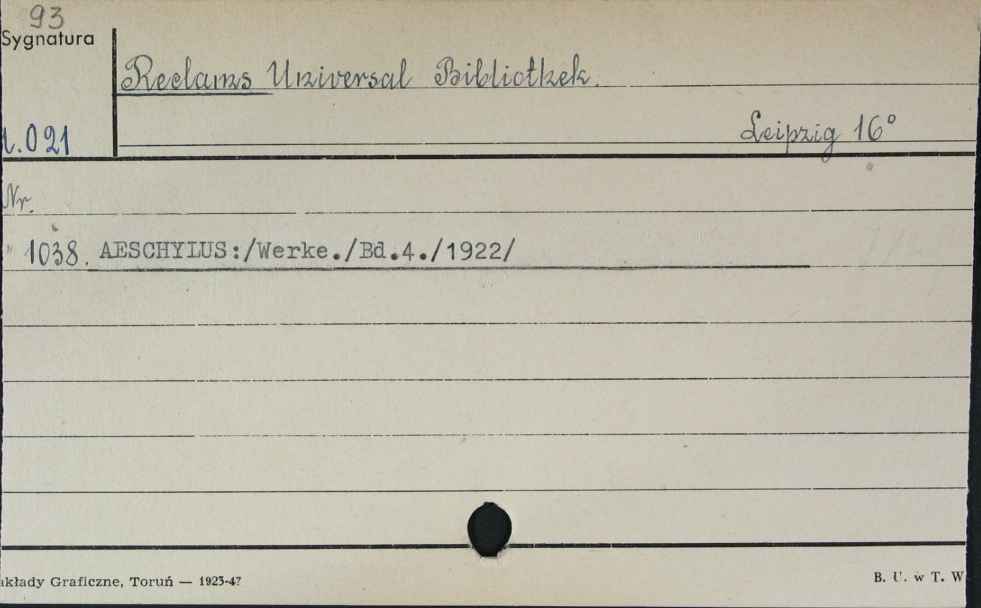 93
Sygnatura
Reclams Universal Bibliothek.
Leipzig 16°
1.021
Nr.
" 1038. AESCHYLUS:/Werke./Bd.4./1922/
akłady Graficzne, Toruń — 1923-47
B. U. w T. W